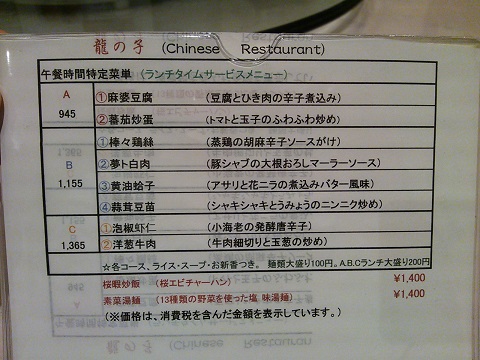 龍の子 (Chinese Restaurant)
午餐時間特定菜単 (ランチタイムサービスメニュー)
A 945
①麻婆豆腐 (豆腐とひき肉の辛子煮込み)
②蕃茄炒蛋 (トマトと玉子のふわふわ炒め)
B 1,155
①棒々鶏絲 (蒸鶏の胡麻辛子ソースがけ)
②夢ト白肉 (豚シャブの大根おろしマーラーソース)
③黄油蛤子 (アサリと花ニラの煮込みバター風味)
④蒜茸豆苗 (シャキシャキとうみょうのニンニク炒め)
C 1,365
①泡椒虾仁 (小海老の発酵唐辛子)
②洋葱牛肉 (牛肉細切りと玉葱の炒め)
☆各コース、ライス・スープ・お新香つき。 麺類大盛り100円。A.B.Cランチ大盛り200円
桜暇炒飯 (桜エビチャーハン) ¥1,400
素菜湯麺 (13種類の野菜を使った塩 味湯麺) ¥1,400
(※価格は、消費税を含んだ金額を表示しています。)